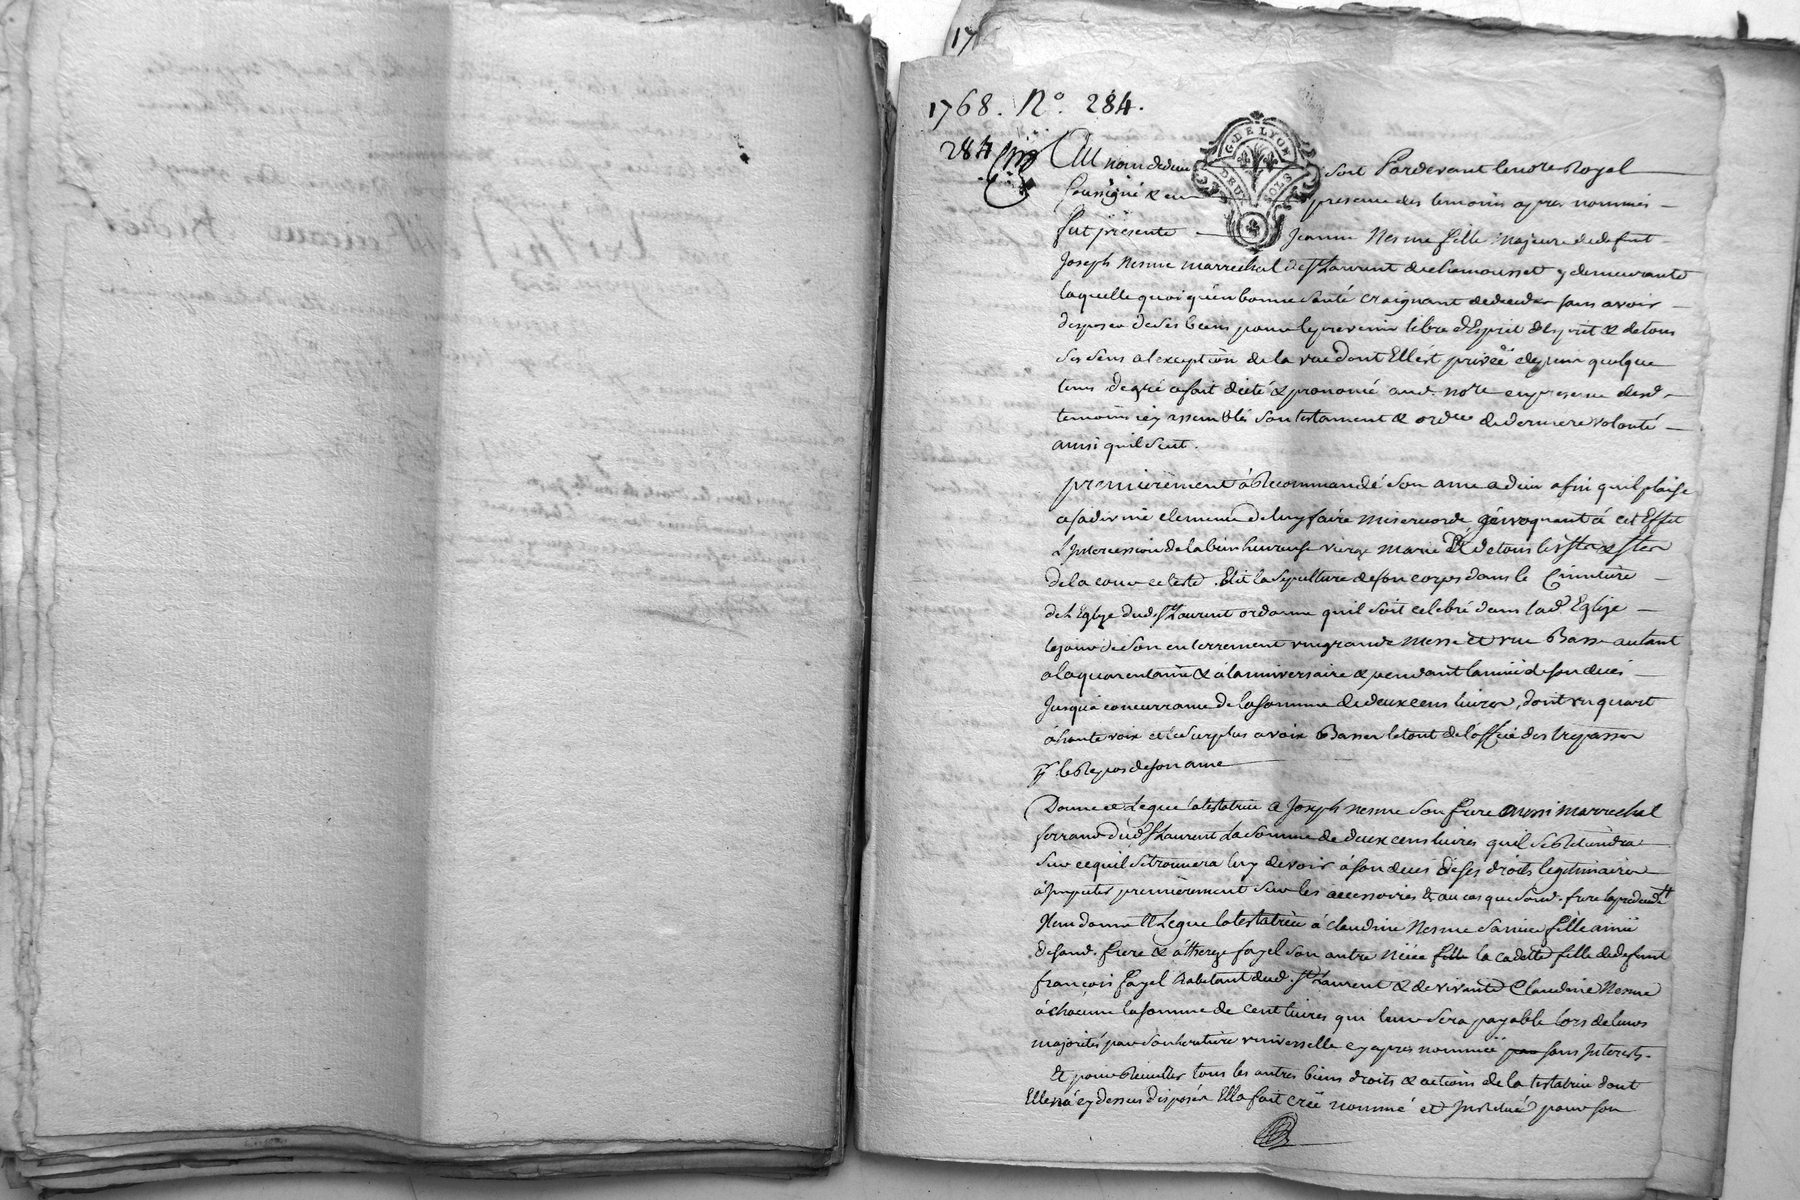 17
1768. N° 284.
284
G. DE LYON
DEUX SOLS
Au nom de dieu soit Pardevant le no.re Royal
soussigné & en presence des temoins apres nommés
fut presente Jeanne Nesme fille majeure de defunt
Joseph Nesme marrechal de St Laurent de chamousset y demeurante
laquelle quoi qu'en bonne santé craignant de deceder sans avoir
disposé de ses biens pour le prevenir libre d'Esprit d'esprit & de tous
ses sens a l'exception de la vue dont Elle est privéé depuis quelque
tems de gré a fait dicté & prononcé aud. no.re en presence desd.
temoins icy assemblés son testament & ordce de derniere volonté
ainsi quil suit.
premierement à Recommandé son ame a dieu afin quil plaise
a sa divine clemence de luy faire misericorde invoquant à cet Effet
L'Intercession de la bien heureuse vierge marie & de tous les Sts & Stes
de la cour celeste. Elit la sepulture de son corps dans le Cimetiere
de l'Eglise dud. St Laurent ordonne quil soit celebré dans lad. Eglise
le jour de son enterrement une grande messe et une Basse autant
a la quarantaine & à l'anniversaire & pendant l'année de son deces
Jusqu'a concurrance de la somme de deux cens livres, dont un quart
à haute voix et le surplus a voix Basse le tout de l'office des trepassés
pr. le Repos de son ame
Donne et Legue la testatrice a Joseph Nesme son frere aussi marrechal
ferrand dud. St Laurent La somme de deux cens livres quil se Retiendra
sur ce quil se trouvera luy devoir à son deces de ses droits legitimaires
à Imputer premierement sur les accessoires & au cas que sond. frere la predeceda
Item donne & Legue la testatrice à claudine Nesme sa niece fille ainéé
de sond. frere & à therese fayel son autre Niéce fille la cadette fille de defunt
françois fayel habitant dud. St Laurent & de vivante Claudine Nesme
à chacune la somme de cent livres qui leur sera payable lors de leurs
majorités par son heritiere universelle cy apres nomméé par sans Interests.
Et pour Recueillir tous les autres biens droits & actions de la testatrice dont
Elle n'a cy dessus disposés Elle a fait creé nommé et Institué pour son